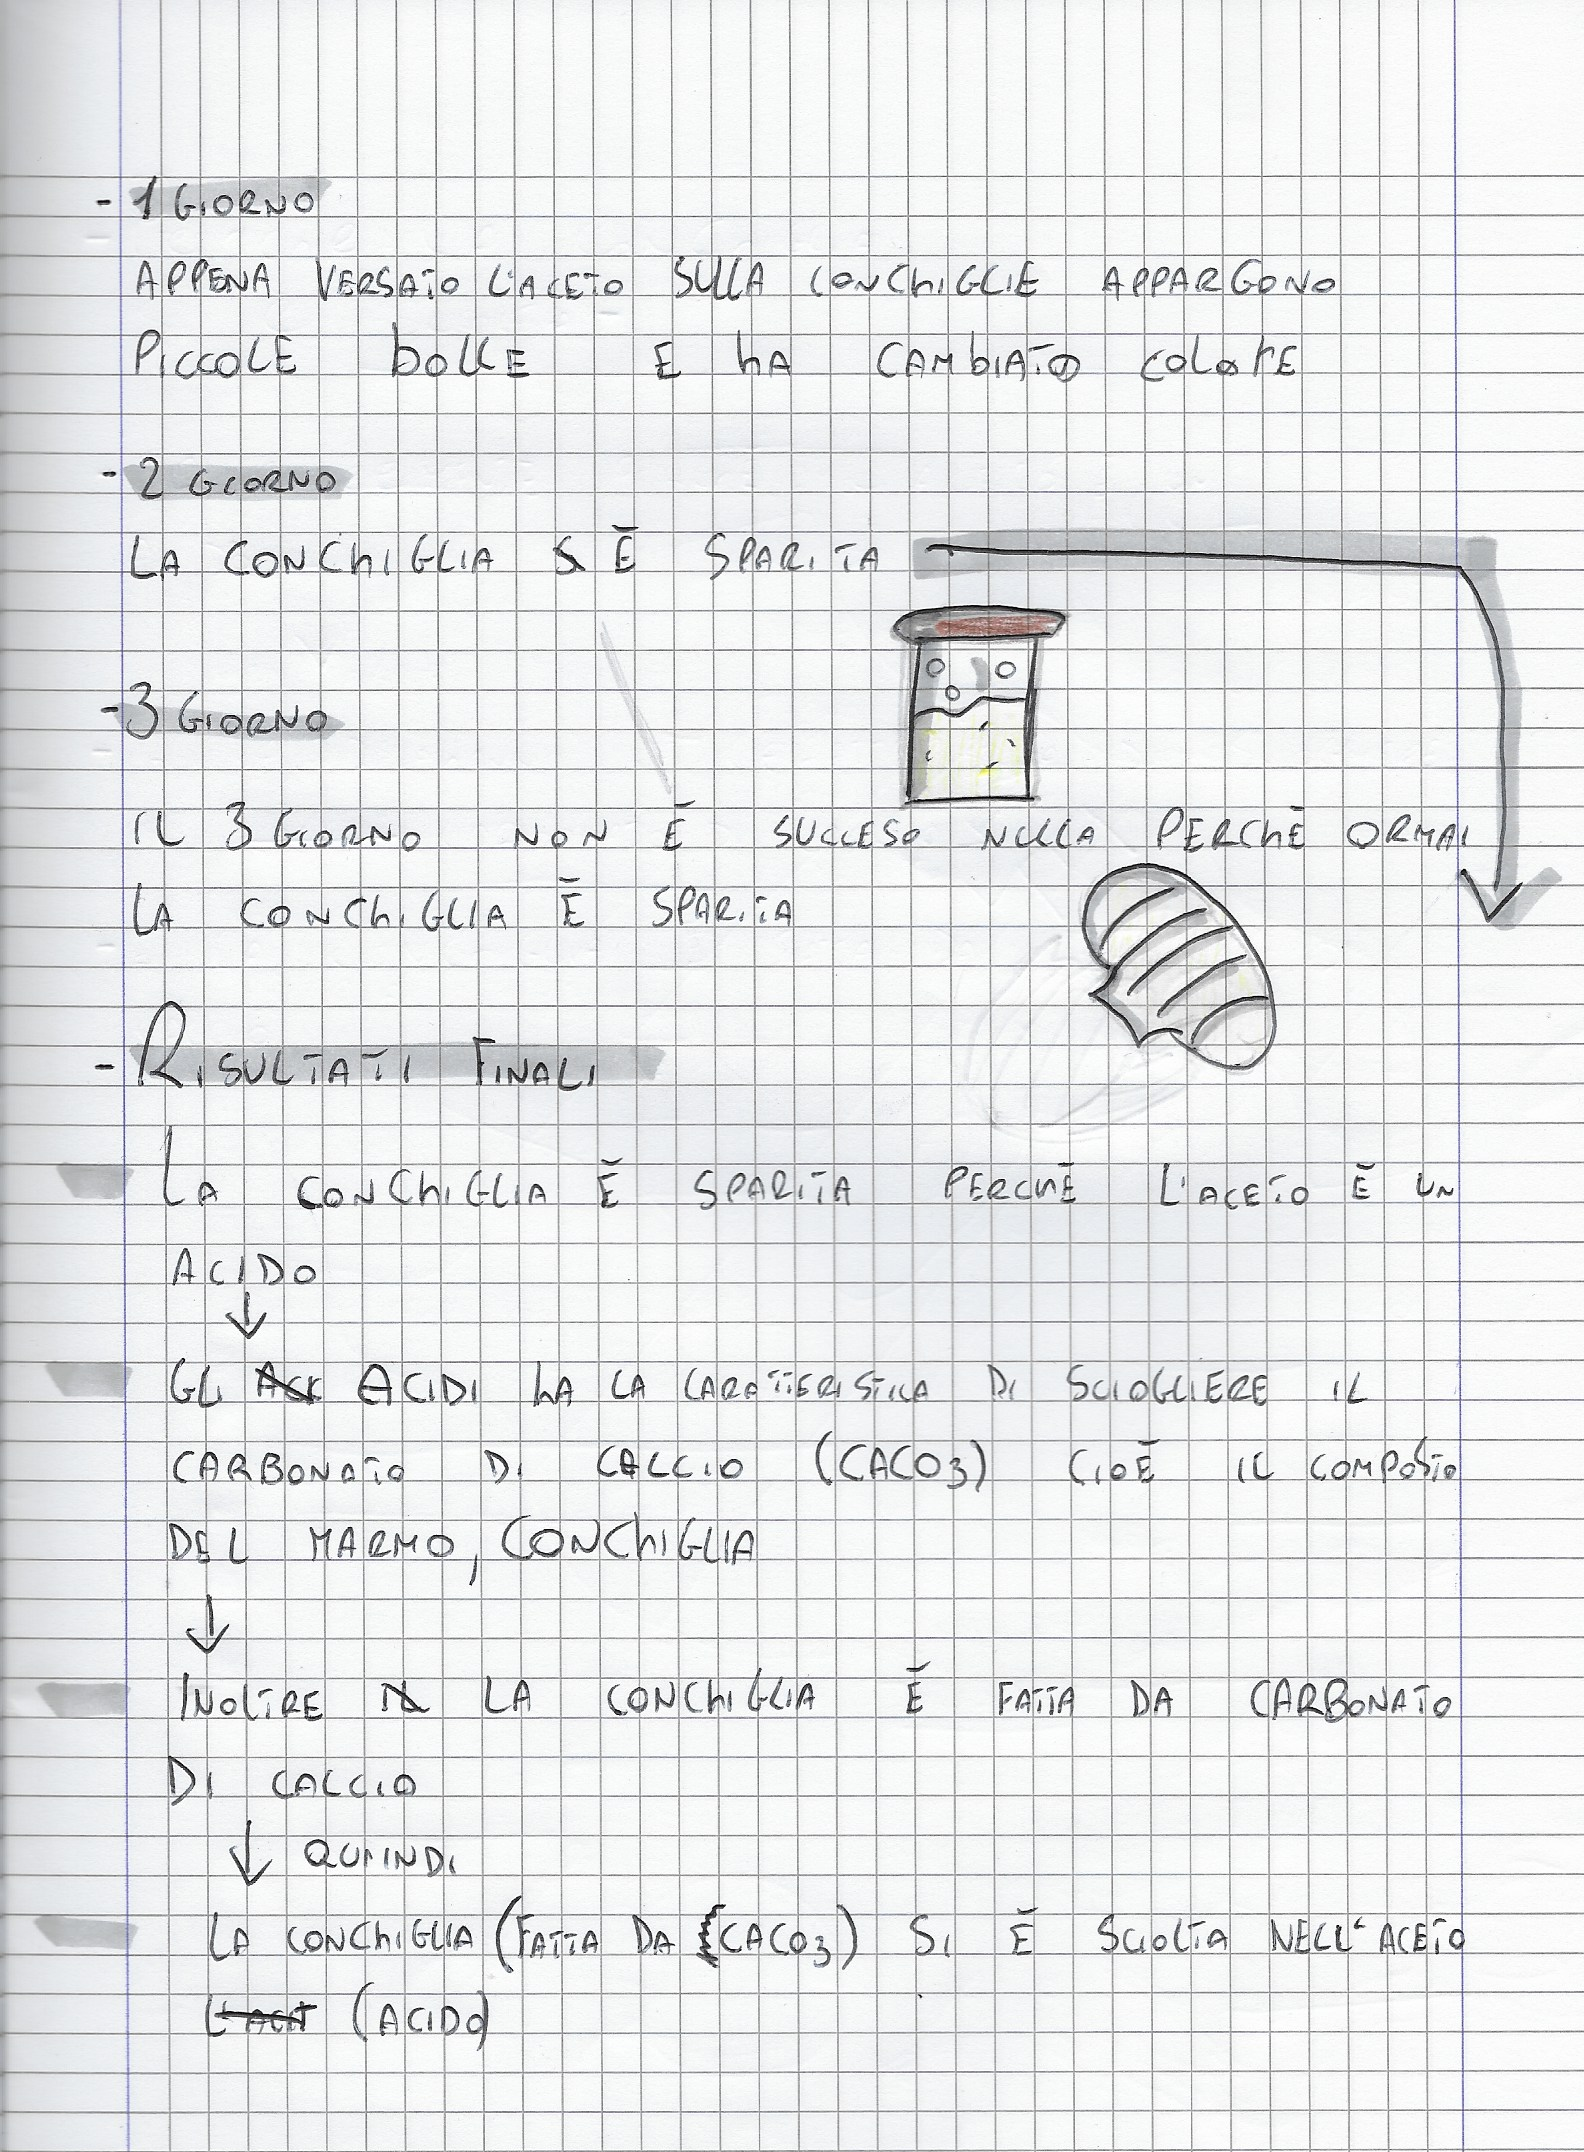 - 1 GIORNO
APPENA VERSATO L'ACETO SULLA CONCHIGLIE APPARGONO
PICCOLE BOLLE E HA CAMBIATO COLORE
- 2 GIORNO
LA CONCHIGLIA È SPARITA
- 3 GIORNO
IL 3 GIORNO NON È SUCCESO NULLA PERCHÈ ORMAI
LA CONCHIGLIA È SPARITA
- RISULTATI FINALI
LA CONCHIGLIA È SPARITA PERCHÈ L'ACETO È UN
ACIDO
↓
GLI ACIDI HA LA CARATTERISTICA DI SCIOGLIERE IL
CARBONATO DI CALCIO (CACO3) CIOÈ IL COMPOSTO
DEL MARMO, CONCHIGLIA
↓
INOLTRE LA CONCHIGLIA È FATTA DA CARBONATO
DI CALCIO
↓ QUINDI
LA CONCHIGLIA (FATTA DA CACO3) SI È SCIOLTA NELL'ACETO
(ACIDO)